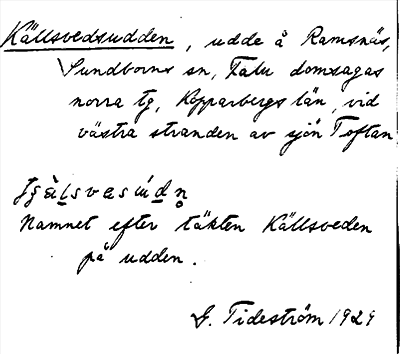 Källsvedsudden, udde å Ramsnäs,
Sundborns sn, Falu domsagas
norra tg, Kopparbergs län, vid
västra stranden av sjön Toftan
Namnet efter täkten Källsveden
på udden.
G. Tideström 1929